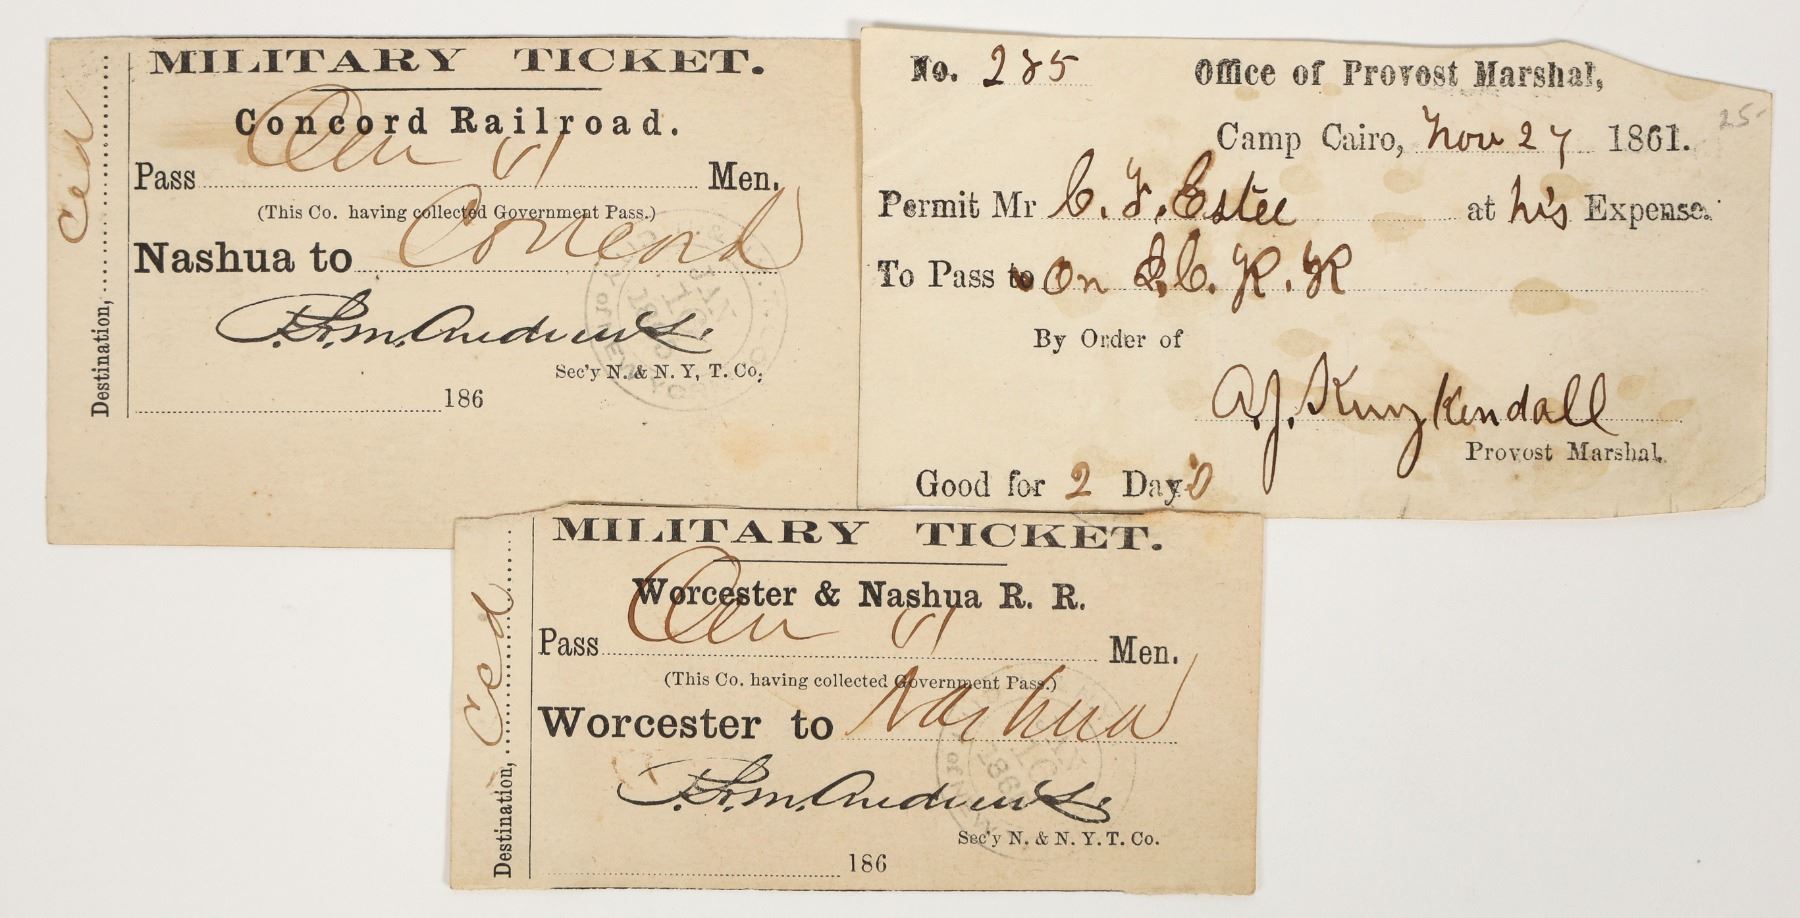 MILITARY TICKET.
Concord Railroad.
Pass One (1) Men.
(This Co. having collected Government Pass.)
Nashua to Concord
Sec'y N. & N. Y, T. Co.
186
Destination,
No. 285
Office of Provost Marshal,
25-
Camp Cairo, Nov 27 1861.
Permit Mr C. F. Estee at his Expense.
To Pass to On I. C. R. R
By Order of
A. J. Kuykendall
Provost Marshal.
Good for 2 Days
MILITARY TICKET.
Worcester & Nashua R. R.
Pass One (1) Men.
(This Co. having collected Government Pass.)
Worcester to Nashua
Sec'y N. & N. Y. T. Co.
186
Destination,